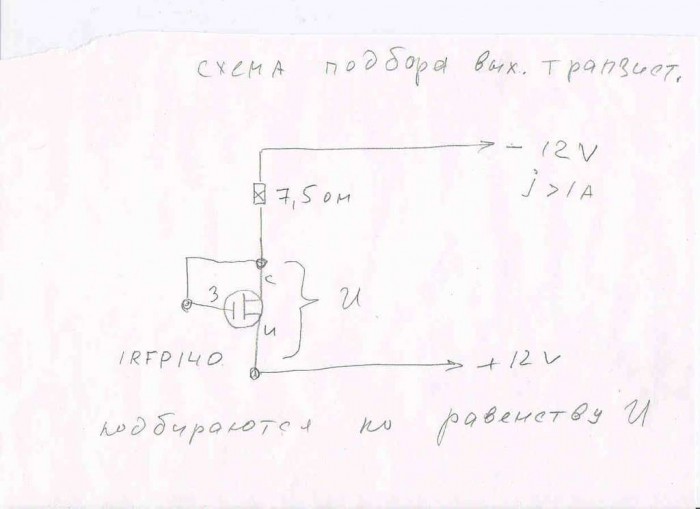 схема подбора вых. транзист.
- 12V
j > 1A
7,5 ом
с
З
и
U
IRFP140
+ 12V
подбираются по равенству U